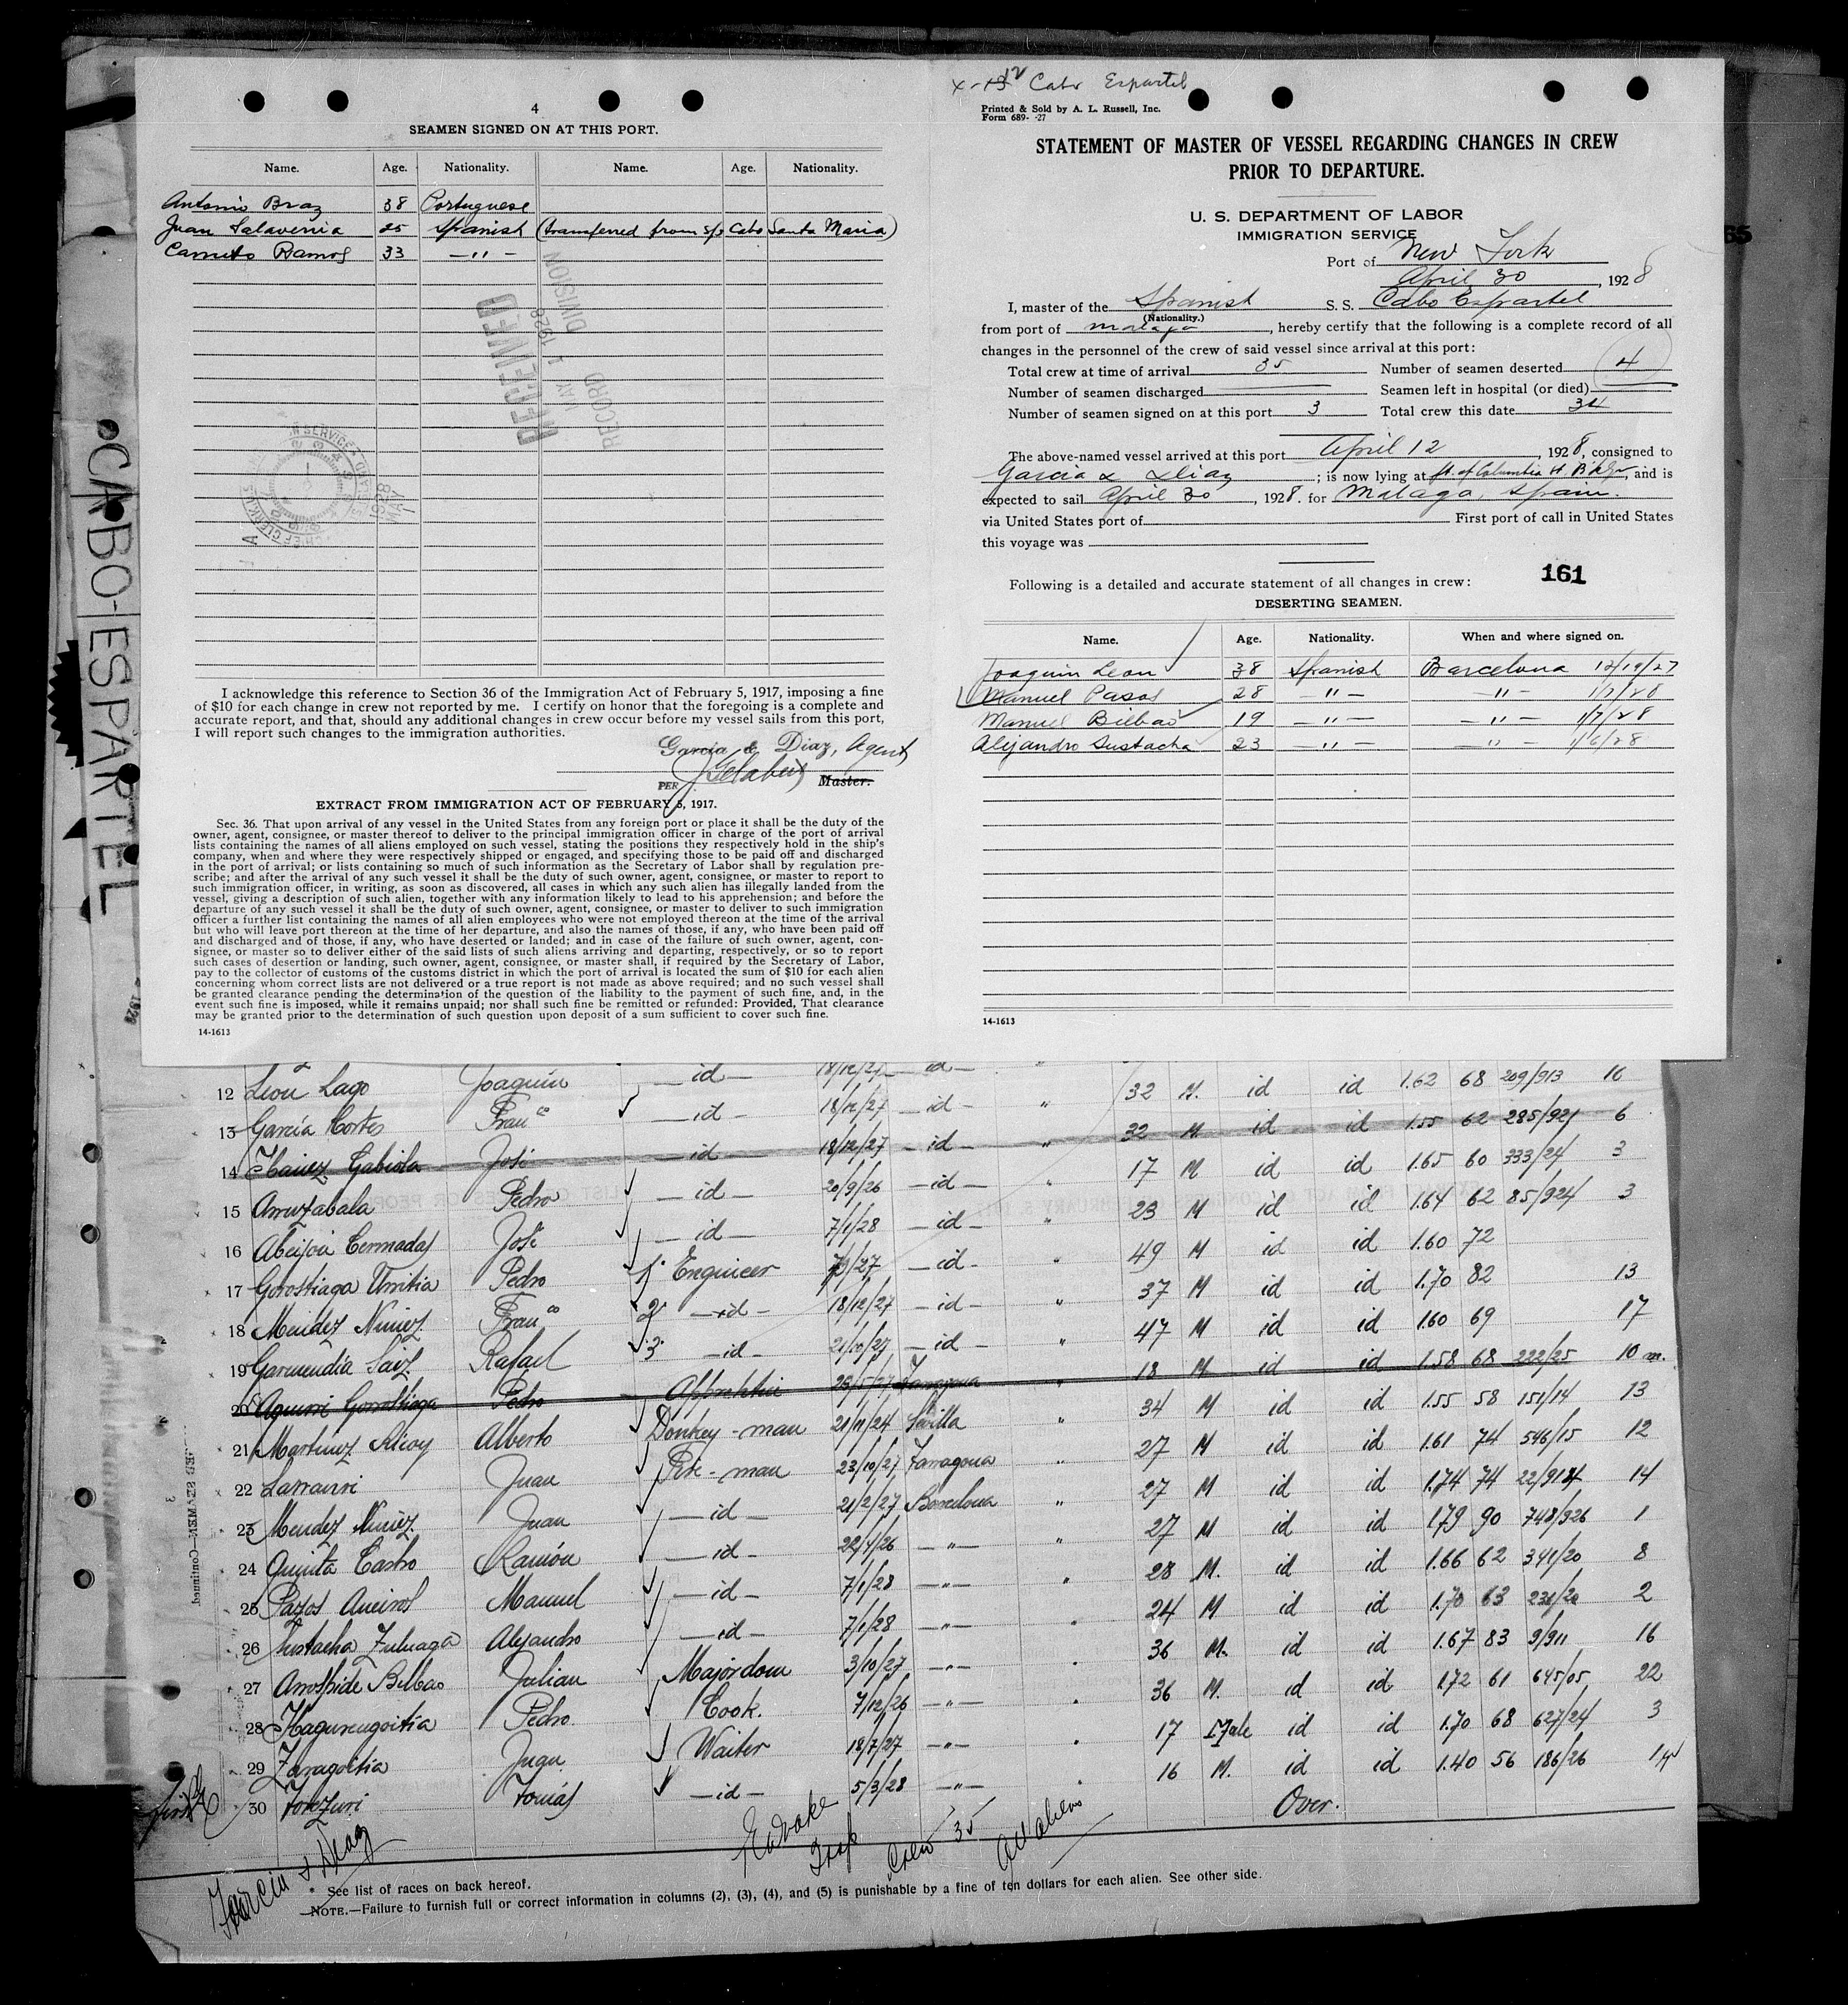 4
SEAMEN SIGNED ON AT THIS PORT.
Name. Age. Nationality. Name. Age. Nationality.
Antonio Braz 38 Portuguese
Juan Salaverria 25 Spanish (transferred from S/S Cabo Santa Maria)
Camilo Ramos 33 — " —
RECEIVED
MAY 1 1928
RECORD DIVISION
I acknowledge this reference to Section 36 of the Immigration Act of February 5, 1917, imposing a fine
of $10 for each change in crew not reported by me. I certify on honor that the foregoing is a complete and
accurate report, and that, should any additional changes in crew occur before my vessel sails from this port,
I will report such changes to the immigration authorities.
Garcia & Diaz, Agents
PER Master.
EXTRACT FROM IMMIGRATION ACT OF FEBRUARY 5, 1917.
Sec. 36. That upon arrival of any vessel in the United States from any foreign port or place it shall be the duty of the
owner, agent, consignee, or master thereof to deliver to the principal immigration officer in charge of the port of arrival
lists containing the names of all aliens employed on such vessel, stating the positions they respectively hold in the ship's
company, when and where they were respectively shipped or engaged, and specifying those to be paid off and discharged
in the port of arrival; or lists containing so much of such information as the Secretary of Labor shall by regulation pre-
scribe; and after the arrival of any such vessel it shall be the duty of such owner, agent, consignee, or master to report to
such immigration officer, in writing, as soon as discovered, all cases in which any such alien has illegally landed from the
vessel, giving a description of such alien, together with any information likely to lead to his apprehension; and before the
departure of any such vessel it shall be the duty of such owner, agent, consignee, or master to deliver to such immigration
officer a further list containing the names of all alien employees who were not employed thereon at the time of the arrival
but who will leave port thereon at the time of her departure, and also the names of those, if any, who have been paid off
and discharged and of those, if any, who have deserted or landed; and in case of the failure of such owner, agent, con-
signee, or master so to deliver either of the said lists of such aliens arriving and departing, respectively, or so to report
such cases of desertion or landing, such owner, agent, consignee, or master shall, if required by the Secretary of Labor,
pay to the collector of customs of the customs district in which the port of arrival is located the sum of $10 for each alien
concerning whom correct lists are not delivered or a true report is not made as above required; and no such vessel shall
be granted clearance pending the determination of the question of the liability to the payment of such fine, and, in the
event such fine is imposed, while it remains unpaid; nor shall such fine be remitted or refunded: Provided, That clearance
may be granted prior to the determination of such question upon deposit of a sum sufficient to cover such fine.
14-1613
Cabo Espartel
Printed & Sold by A. L. Russell, Inc.
Form 689- -27
STATEMENT OF MASTER OF VESSEL REGARDING CHANGES IN CREW
PRIOR TO DEPARTURE.
U. S. DEPARTMENT OF LABOR
IMMIGRATION SERVICE
Port of New York
April 30, 1928
I, master of the Spanish S. S. Cabo Espartel
(Nationality.)
from port of Malaga, hereby certify that the following is a complete record of all
changes in the personnel of the crew of said vessel since arrival at this port:
Total crew at time of arrival 35 Number of seamen deserted 4
Number of seamen discharged Seamen left in hospital (or died)
Number of seamen signed on at this port 3 Total crew this date 34
The above-named vessel arrived at this port April 12, 1928, consigned to
Garcia & Diaz; is now lying at ft. of Columbia St. Bklyn, and is
expected to sail April 30, 1928. for Malaga, Spain.
via United States port of First port of call in United States
this voyage was
161
Following is a detailed and accurate statement of all changes in crew:
DESERTING SEAMEN.
Name. Age. Nationality. When and where signed on.
Joaquin Leon 38 Spanish Barcelona 12/19/27
Manuel Pasos 28 — " — — " — 1/7/28
Manuel Bilbao 19 — " — — " — 1/7/28
Alejandro Sustacha 23 — " — — " — 1/6/28
14-1613
CABO-ESPARTEL
65
12 Leon Lago Joaquín —id— 18/12/27 —id— "
32 M. id id 1.62 68 209/913 16
13 García Cortes Franco —id— 18/12/27 —id— "
32 M id id 1.55 62 285/921 6
14 Ibañez Gabiola José —id— 18/12/27 —id— "
17 M id id 1.65 60 333/24 3
15 Arruzabala Pedro —id— 20/9/26 —id— "
23 M id id 1.64 62 85/924 3
16 José —id— 7/1/28 —id— "
49 M id id 1.60 72
17 Gorostiaga Urrutia Pedro 1º Engineer —id— "
37 M id id 1.70 82 13
18 Mendez Nuñez Franco 2º —id— 18/12/27 —id— "
47 M id id 1.60 69 17
19 Garmendia Saiz Rafael 3º —id— 21/10/27 —id— "
18 M id id 1.58 68 222/25 10 m.
20 Aguirri Gorrostiaga Pedro 25/5/27 Tarragona "
34 M id id 1.55 58 151/14 13
21 Martinez Alcoy Alberto Donkey-man 21/11/24 Sevilla "
27 M id id 1.61 74 546/15 12
22 Larrauri Juan Fire-man 23/10/27 Tarragona "
27 M id id 1.74 74 14
23 Mendez Nuñez Juan —id— 21/2/27 Barcelona "
27 M id id 1.79 90 748/926 1
24 Quinta Castro Ramón —id— 22/4/26 —"— "
28 M. id id 1.66 62 341/20 8
25 Pazos Aneiros Manuel —id— 7/1/28 —"— "
24 M id id 1.70 63 2
26 Sustacha Zuluaga Alejandro —id— 7/1/28 —"— "
36 M. id id 1.67 83 9/911 16
27 Arrospide Bilbao Julian Majordom 3/10/27 —"— "
36 M. id id 1.72 61 645/05 22
28 Pedro Cook. 7/12/26 —"— "
17 Male id id 1.70 68 627/24 3
29 Zarragoitia Juan Waiter 18/7/27 —"— "
16 M. id id 1.40 56 186/26
30 Tomás —id— 5/3/28 —"— "
Over.
Garcia & Diaz
Crew 35
All aliens
* See list of races on back hereof.
NOTE.—Failure to furnish full or correct information in columns (2), (3), (4), and (5) is punishable by a fine of ten dollars for each alien. See other side.